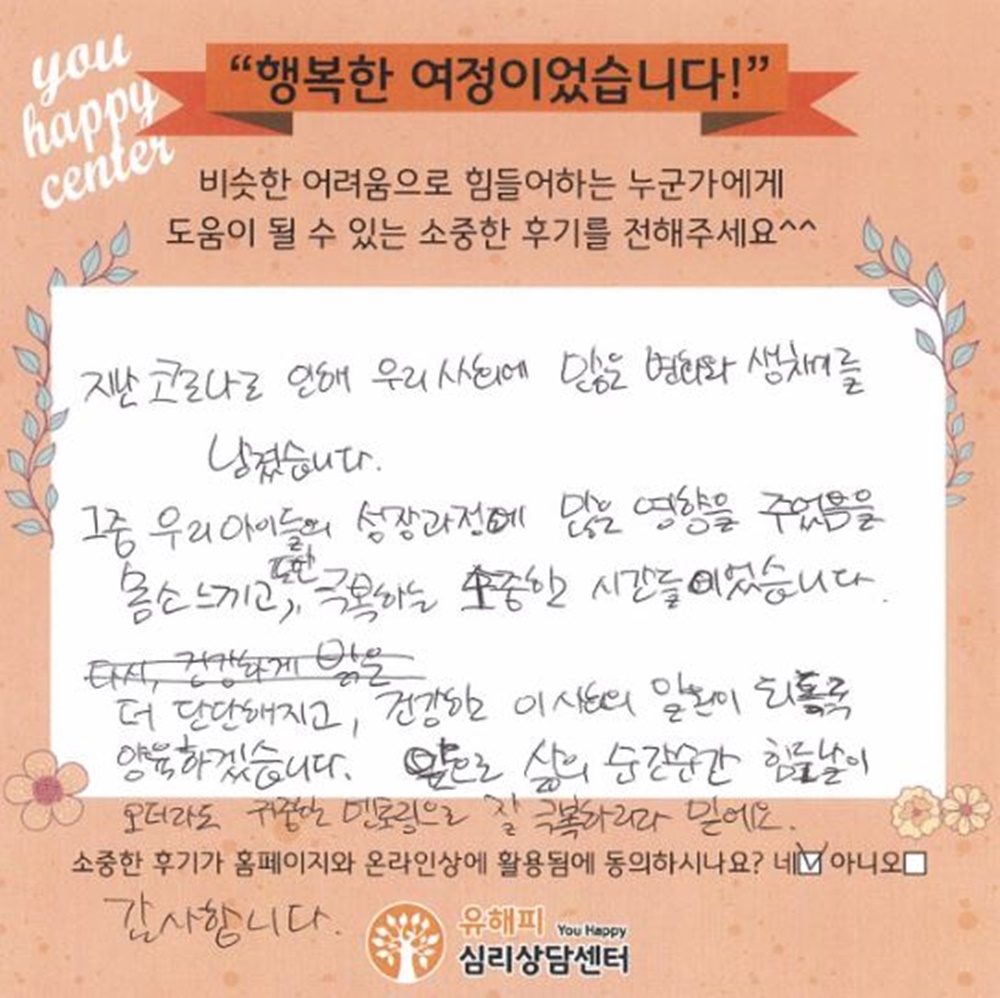 you
happy
center
“행복한 여정이었습니다!”
비슷한 어려움으로 힘들어하는 누군가에게
도움이 될 수 있는 소중한 후기를 전해주세요^^
지난 코로나로 인해 우리 사회에 많은 변화와 생채기를
남겼습니다.
그중 우리 아이들의 성장과정에 많은 영향을 주었음을
또한
몸소 느끼고, 극복하는 소중한 시간들이었습니다.
다시, 건강하게 밝은
더 단단해지고, 건강한 이 사회의 일원이 되도록
양육하겠습니다. 앞으로 삶의 순간순간 힘든날이
오더라도 귀중한 멘토링으로 잘 극복하리라 믿어요.
소중한 후기가 홈페이지와 온라인상에 활용됨에 동의하시나요? 네 아니오
감사합니다.
유해피 You Happy
심리상담센터